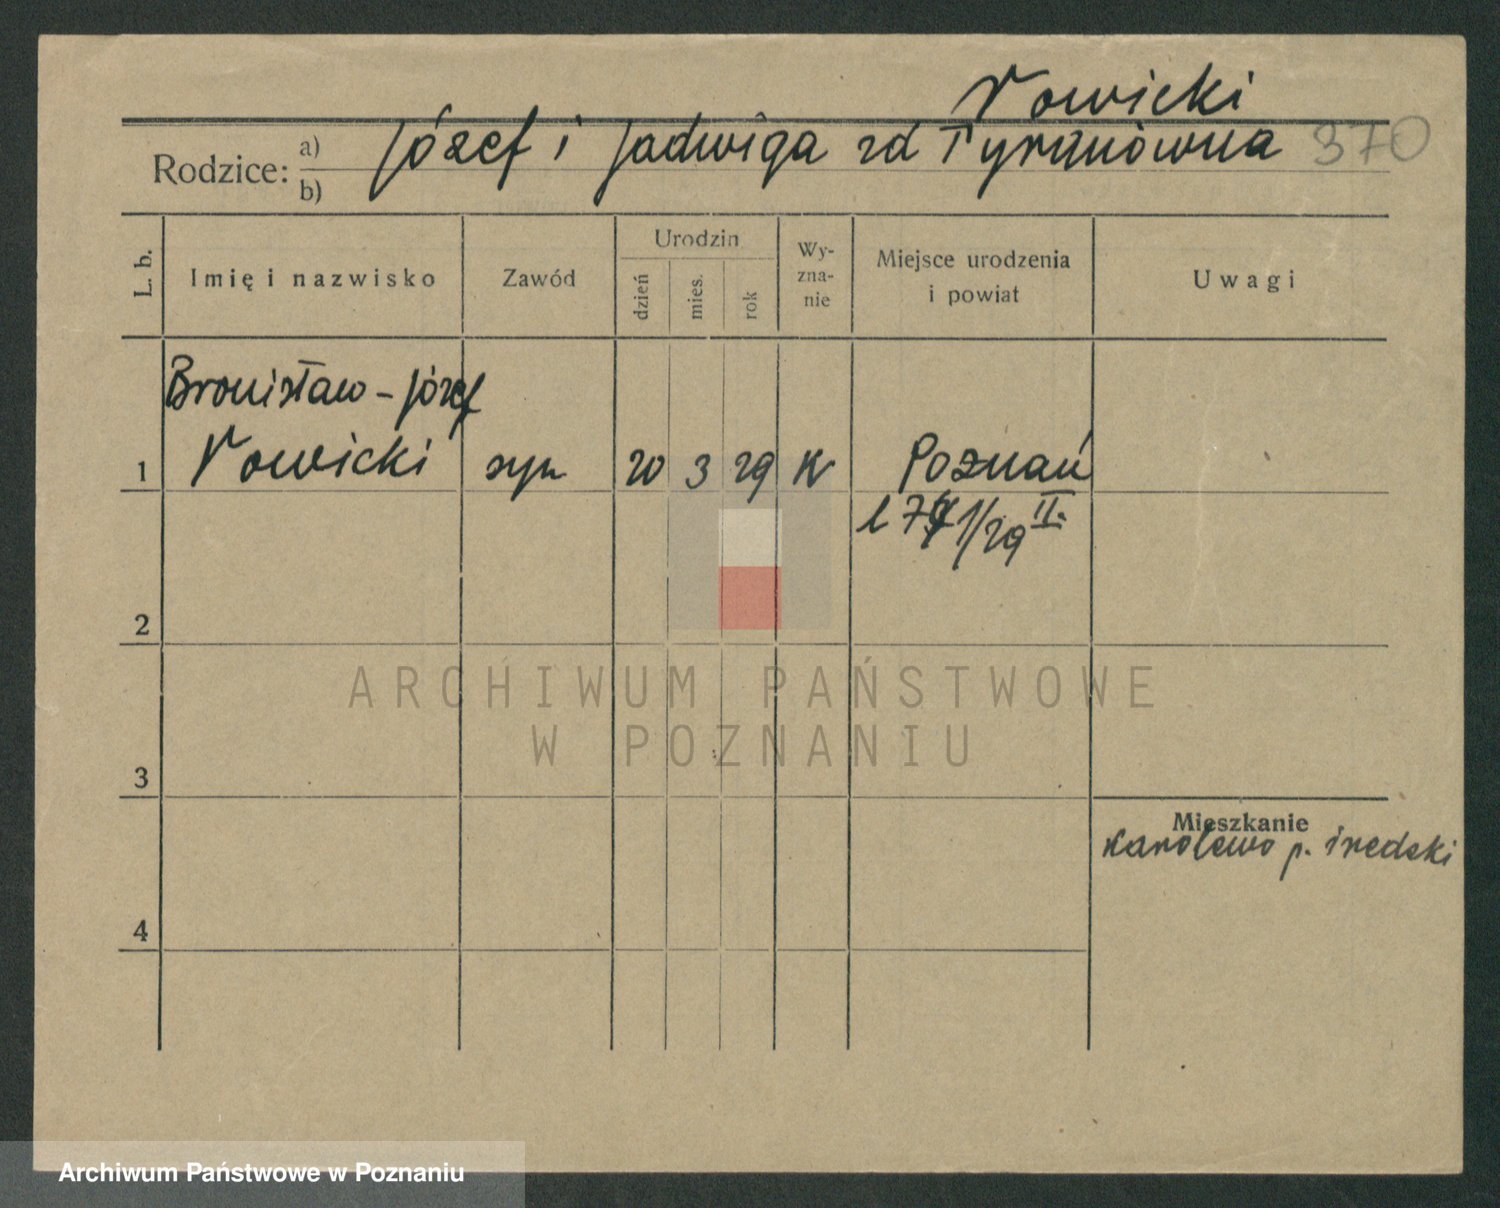 Nowicki
Rodzice: a) b) Józef i Jadwiga zd Tyranówna 370
L. b.
Imię i nazwisko
Zawód
Urodzin
dzień
mies.
rok
Wy-
zna-
nie
Miejsce urodzenia
i powiat
Uwagi
Bronisław - Józef
1 Nowicki syn 20 3 29 K Poznań
/29 II.
2
3
4
Mieszkanie
Karolewo p. średzki
ARCHIWUM PAŃSTWOWE
W POZNANIU
Archiwum Państwowe w Poznaniu